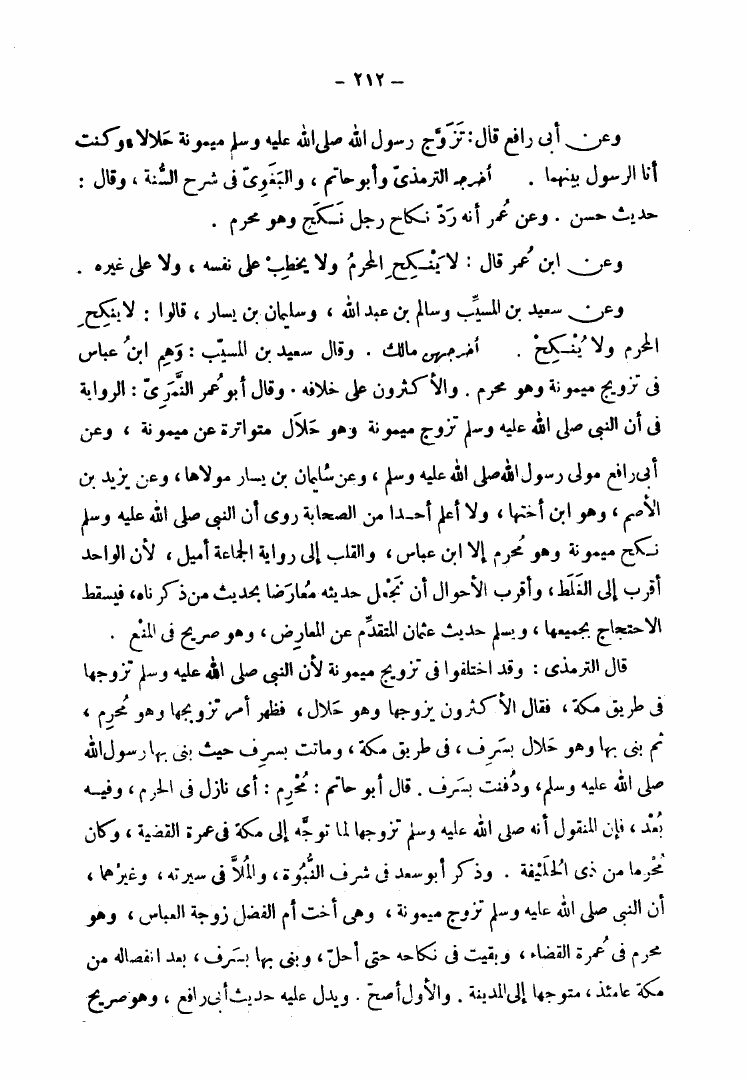 — ٢١٢ —
وعن أبى رافع قال: تَزَوَّج رسول الله صلى الله عليه وسلم ميمونة حَلالا، وكنت
أنا الرسول بينهما . أخرجه الترمذىّ وأبو حاتم ، والبَغَوِىّ فى شرح السُّنة ، وقال :
حديث حسن . وعن عُمر أنه رَدّ نكاح رجل نَكَح وهو محرم .
وعن ابن عُمر قال : لا يَنْكِح المحرمُ ولا يخطِبْ على نفسه ، ولا على غيره .
وعن سعيد بن المسيِّب وسالم بن عبد الله ، وسليمان بن يسار ، قالوا : لا ينكِح
المحرم ولا يُنْكِحْ . أخرجهن مالك . وقال سعيد بن المسيّب : وَهِم ابنُ عباس
فى تزويج ميمونة وهو محرم . والأكثرون على خلافه . وقال أبو عُمر النَّمَرِىّ : الرواية
فى أن النبى صلى الله عليه وسلم تزوج ميمونة وهو حَلَال متواترة عن ميمونة ، وعن
أبى رافع مولى رسول الله صلى الله عليه وسلم ، وعن سُليمان بن يسار مولاها ، وعن يزيد بن
الأصم ، وهو ابن أختها ، ولا أعلم أحدا من الصحابة روى أن النبى صلى الله عليه وسلم
نكح ميمونة وهو مُحرم إلا ابن عباس ، والقلب إلى رواية الجماعة أميل ، لأن الواحد
أقرب إلى الغَلَط ، وأقرب الأحوال أن نَجْعل حديثه مُعارَضا بحديث من ذكرناه ، فيسقط
الاحتجاج بجميعها ، ويسلم حديث عثمان المتقدِّم عن المعارِض ، وهو صريح فى المنْع .
قال الترمذى : وقد اختلفوا فى تزويج ميمونة لأن النبى صلى الله عليه وسلم تزوجها
فى طريق مكة ، فقال الأكثرون يزوجها وهو حَلال ، فظهر أمر تزويجها وهو مُحرِم ،
ثم بنى بها وهو حلال بسَرِف ، فى طريق مكة ، وماتت بسرِف حيث بنى بها رسول الله
صلى الله عليه وسلم ، ودُفنت بسَرف . قال أبو حاتم : مُحْرِم : أى نازل فى الحرم ، وفيه
بُعْد ، فإن المنقول أنه صلى الله عليه وسلم تزوجها لما توجَّه إلى مكة فى عمرة القضية ، وكان
مُحْرِما من ذى الحُلَيْفة . وذكر أبو سعد فى شرف النُّبُوة ، والمُلاَّ فى سيرته ، وغيرُهما ،
أن النبى صلى الله عليه وسلم تزوج ميمونة ، وهى أخت أم الفضل زوجة العباس ، وهو
محرم فى عُمرة القضاء ، وبقيت فى نكاحه حتى أحلّ ، وبنى بها بسَرف ، بعد انفصاله من
مكة عامئذ ، متوجها إلى المدينة . والأول أصحّ . ويدل عليه حديث أبى رافع ، وهو صريح